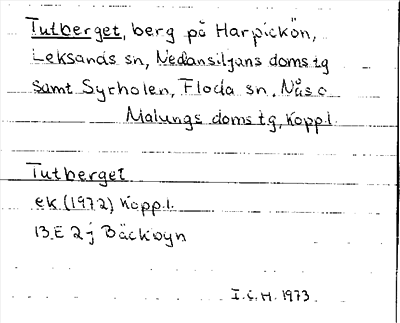 Tutberget, berg på Harpickön,
Leksands sn, Nedansiljans domstg
samt Syrholen, Floda sn, Nås o
Malungs domstg, Kopp.l.
Tutberget
ek (1972) Kopp.l.
13E 2j Bäckbyn
I.C.H. 1973.